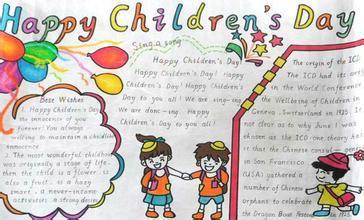 Happy Children's Day
Sing a song
Happy Children's Day!
Happy Children's Day! Happy
Children's Day! Happy Children's
Day to you all! We are sing-ing
We are danc-ing. Happy
Children's Day to you all!
Best Wishes
1. Happy Children's Day!
the innocence of you
forever! You always
willing to maintain a childlike
innocence
2. The most wonderful childhood
was really a stage of
then the child is a flower, is
also a fruit, is a hazy
smart, a never-intense
activists, a strong desire
The origin of the ICD
The ICD had its
in the World Conference
the Wellbeing of Children
Geneva, Switzerland in 1925.
not clear as to why June 1 was
chosen as the ICD: one theory
that the Chinese consul-
in San Francisco
(USA) gathered a
number of Chinese
orphans to celebrate
the Dragon Boat Festival in